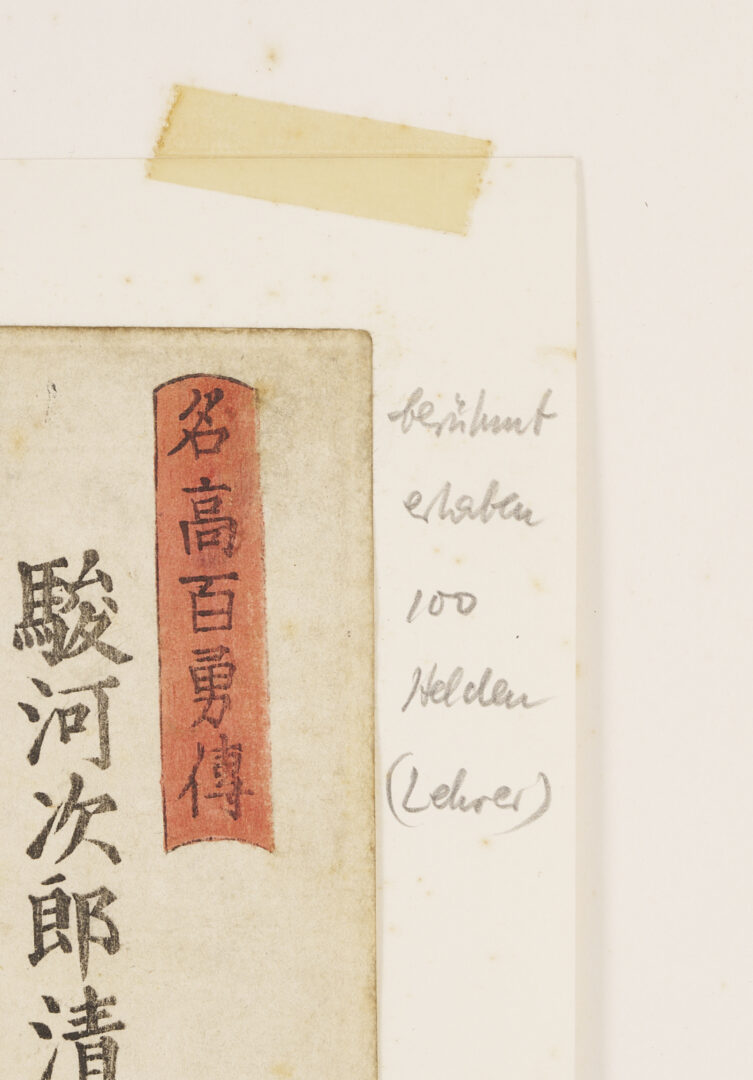 名高百勇傳
駿河次郎清
berühmt
erhaben
100
Helden
(Lehrer)